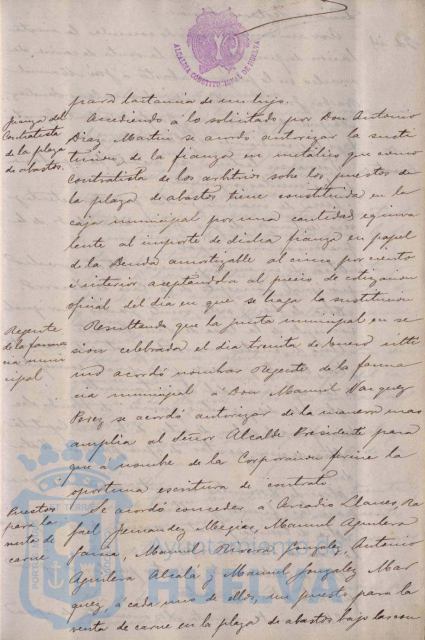 ALCALDIA CONSTITUCIONAL DE HUELVA
para lactancia de un hijo.
fianza del
Contratista
de la plaza
de abastos.
Accediendo á lo solicitado por Don Antonio
Diaz Martin se acordó autorizar la susti
tucion de la fianza en metálico que como
Contratista de los arbitrios sobre los puestos de
la plaza de abastos tiene constituida en la
caja municipal por una cantidad equiva
lente al importe de dicha fianza en papel
de la Deuda amortizable al cinco por ciento
é interior aceptandola al precio de cotizacion
oficial del dia en que se haga la sustitucion
Regente
de la farma
cia muni
cipal
Resultando que la junta municipal en se
sion celebrada el dia treinta de Enero ulti
mo acordó nombrar Regente de la farma
cia municipal á Don Manuel Vazquez
Perez se acordó autorizar de la manera mas
amplia al Señor Alcalde Presidente para
que á nombre de la Corporacion firme la
oportuna escritura de contrato
Puestos
para la
venta de
carne
Se acordó conceder á Arcadio Llanes, Ra
fael Fernandez Megias, Manuel Aguilera
Manuel Rivera Gonzalez, Antonio
Aguilera Alcalá y Manuel Gonzalez Mar
quez, á cada uno de ellos, un puesto para la
venta de carne en la plaza de abastos bajo las con
Ayuntamiento de
HUELVA